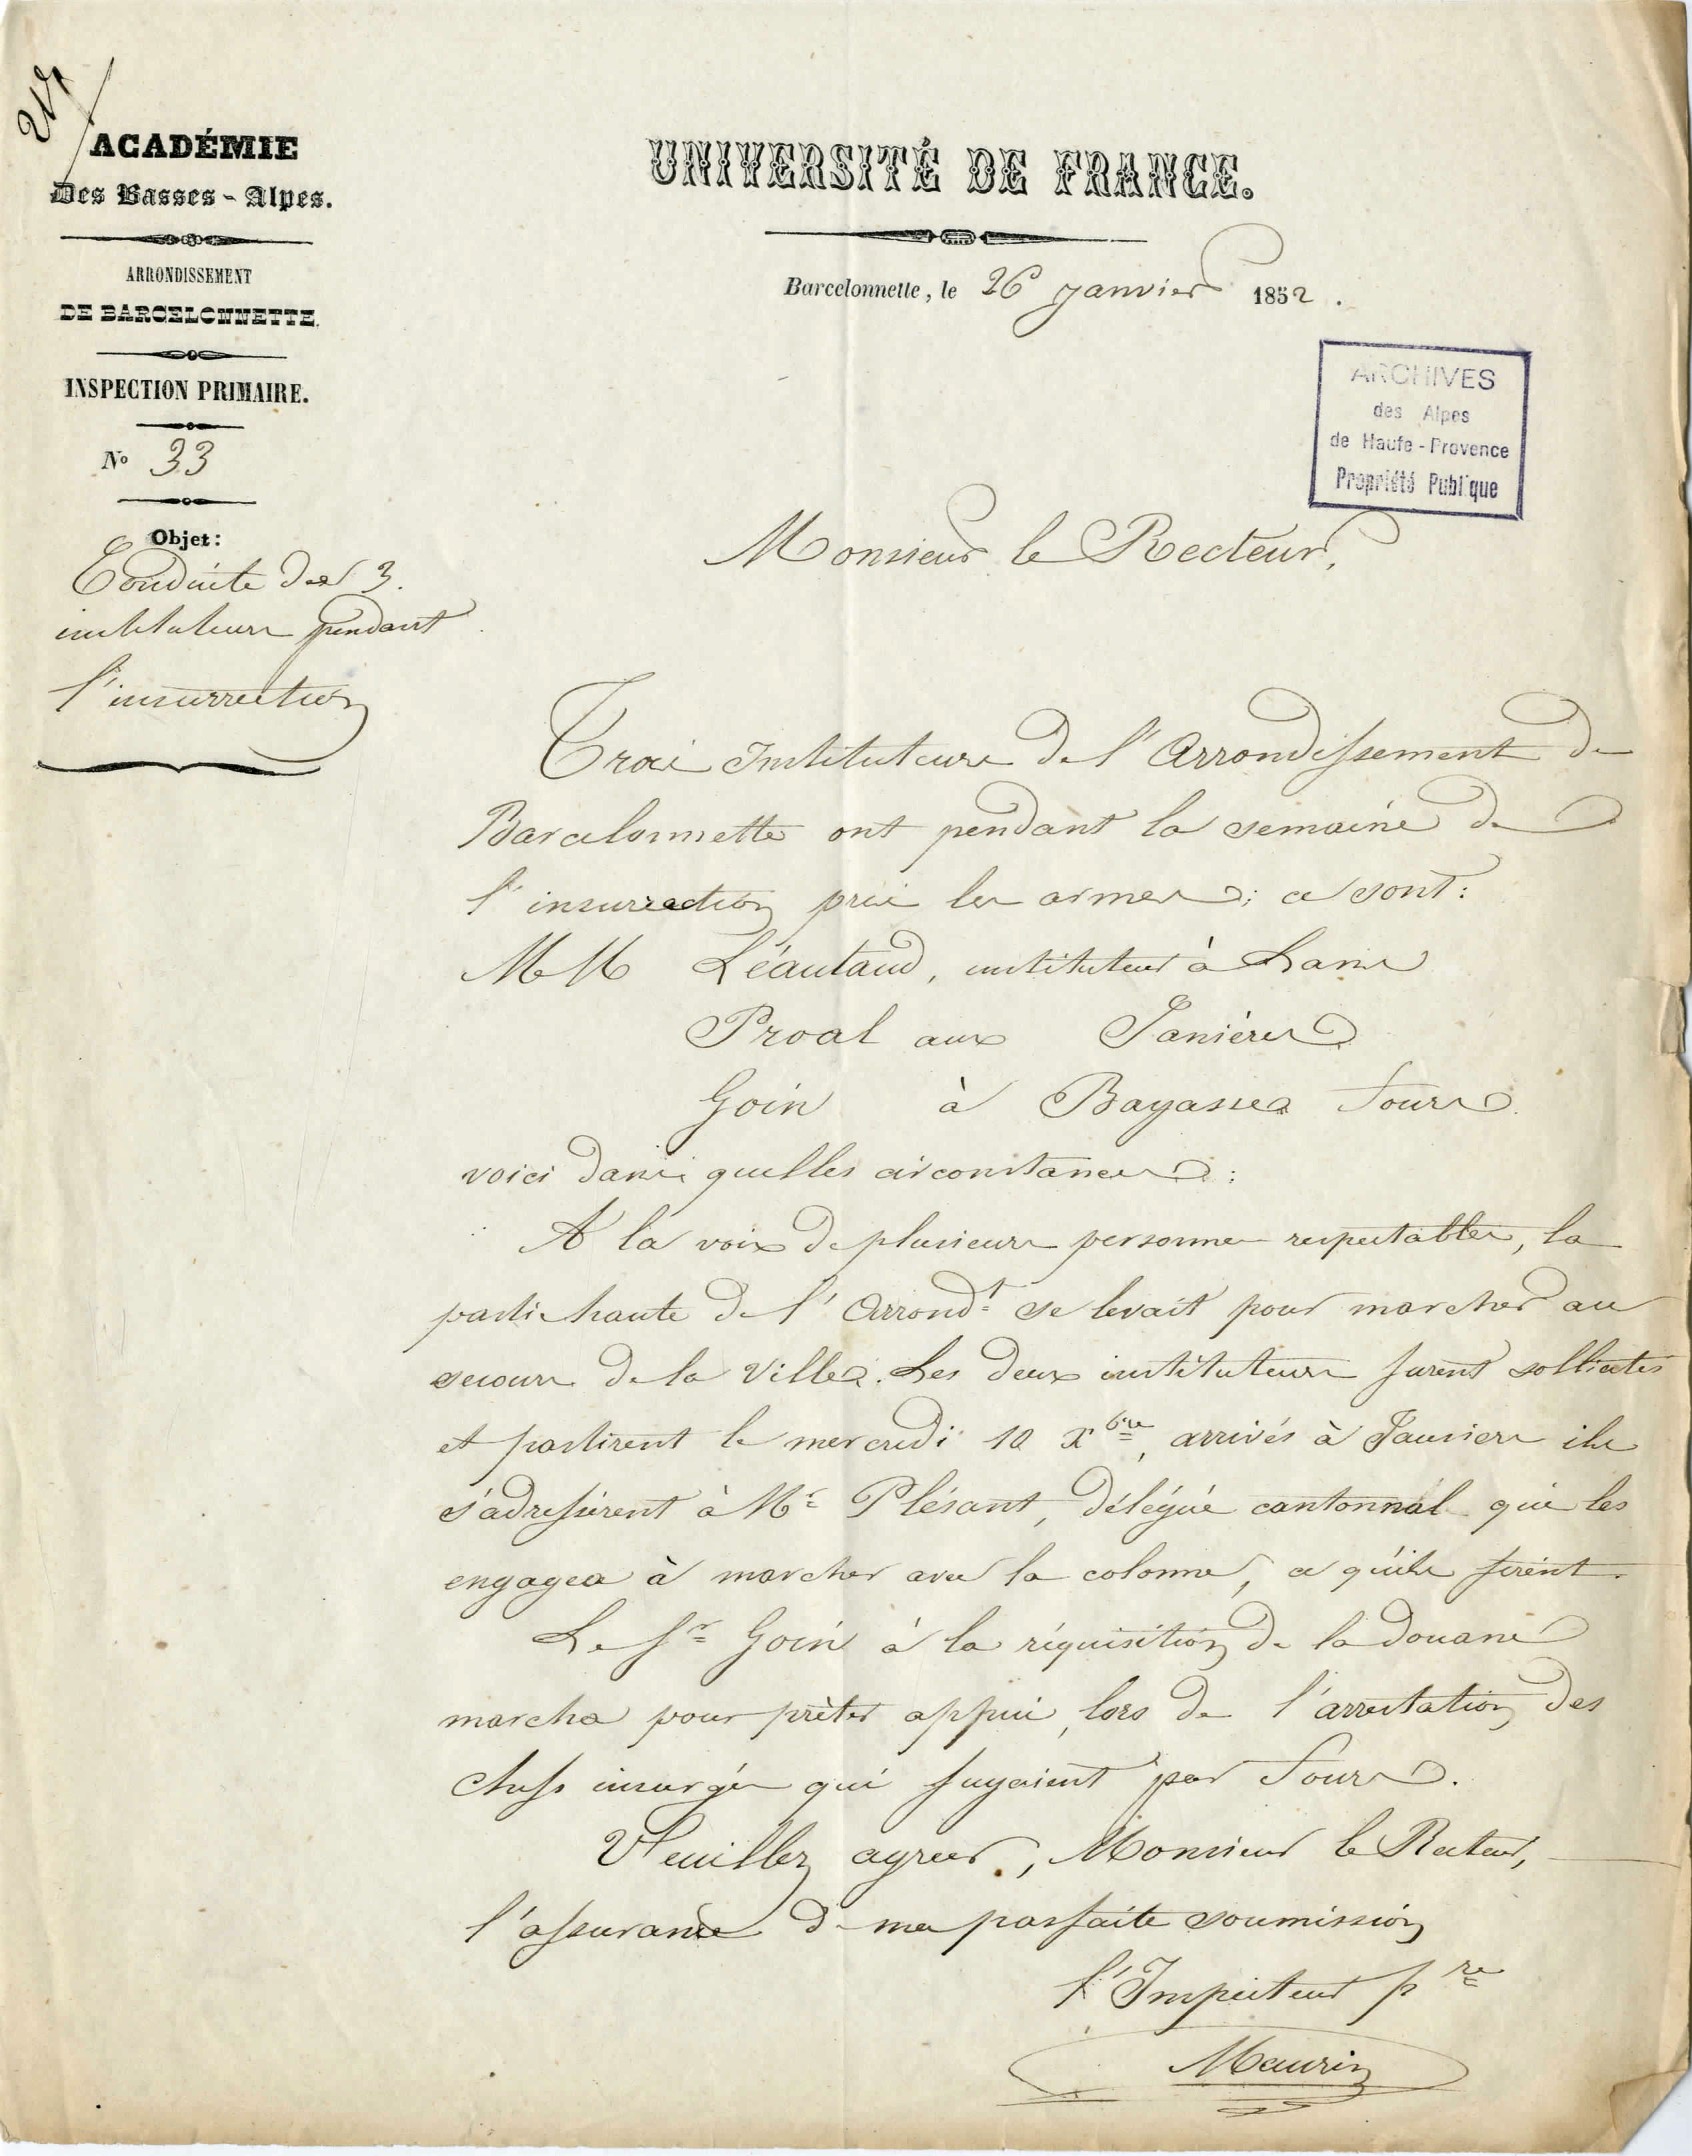 217
ACADÉMIE
Des Basses-Alpes.
ARRONDISSEMENT
DE BARCELONNETTE.
INSPECTION PRIMAIRE.
No 33
Objet:
Conduite des 3.
instituteurs pendant
l'insurrection
UNIVERSITÉ DE FRANCE.
Barcelonnette, le 26 janvier 1852.
ARCHIVES
des Alpes
de Haute-Provence
Propriété Publique
Monsieur le Recteur,
Trois Instituteurs de l'Arrondissement de
Barcelonnette ont pendant la semaine de
l'insurrection pris les armes; ce sont:
MM Léautaud, instituteur à Lans
Proal aux Sanières
Goin à Bayasse Fours
voici dans quelles circonstances:
A la voix de plusieurs personnes respectables, la
partie haute de l'Arrondt se levait pour marcher au
secours de la Ville. Les deux instituteurs furent sollicités
et partirent le mercredi 10 Xbre, arrivés à Jausiers ils
s'adressèrent à Mr Plésant, délégué cantonnal qui les
engagea à marcher avec la colonne, ce qu'ils firent.
Le Sr Goin à la réquisition de la douane
marcha pour prêter appui, lors de l'arrestation des
chefs insurgés qui fuyaient par Fours.
Veuillez agréer, Monsieur le Recteur,
l'assurance de ma parfaite soumission
l'Inspecteur pre
Maurin